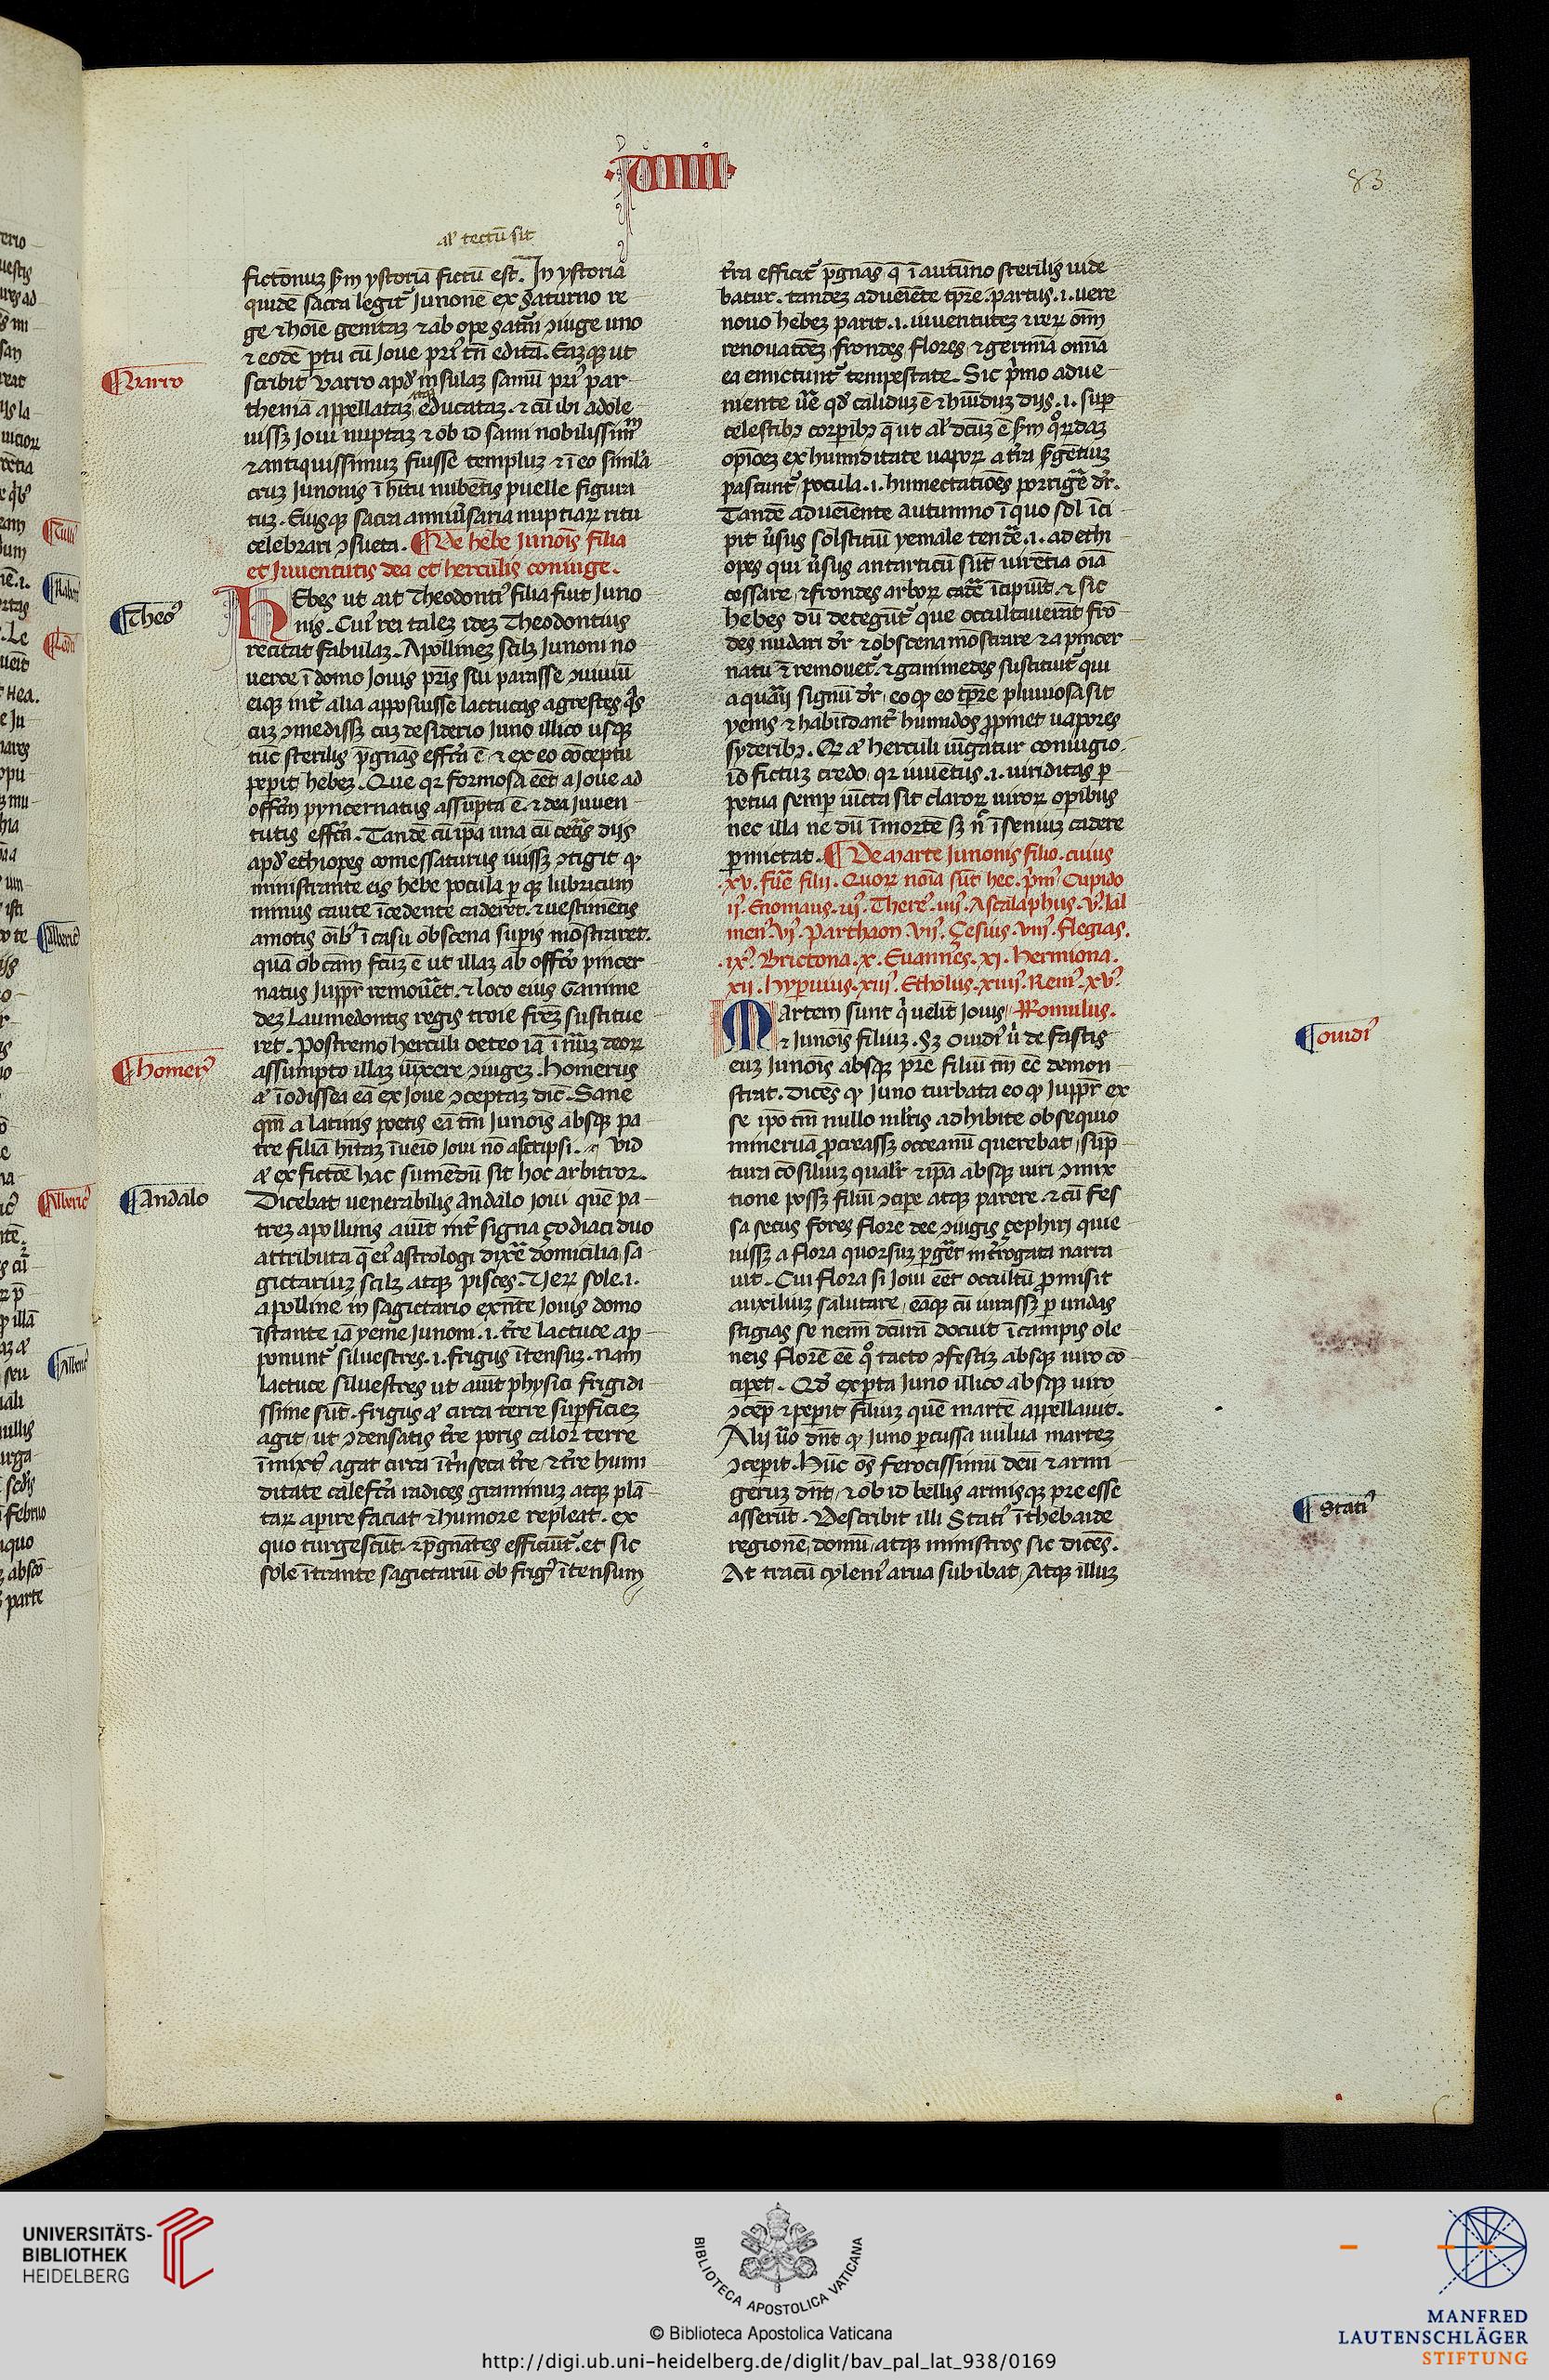 viiij
83
al' tectū sit
fictonuz ẜm ystoriā fictū est. In ystoria
quidē sacra legit᷑ Junonē ex Saturno re
ge ⁊ hoīe genitaz ⁊ ab ope Sat᷑ni ꝯiuge uno
⁊ eodē ꝑtu cū Joue pri᷑ tn̄ editā. Eazqꝫ ut
¶Varro
scribit Varro apd' insulaz samū pri᷑ par
theniā appellataz educataz. ⁊ cū ibi adole
uissꝫ Joui nuptaz ⁊ ob id sami nobilissim᷑
⁊ antiquissimuz fuisse templuz ⁊ ī eo simla
cruz Junonis ī hitu nubētis puelle figura
tuz. Eiusqꝫ sacra anniu᷑saria nuptiaꝝ ritu
celebrari ꝯsueta. ¶De hebe Junoīs filia
et Juuentutis dea et herculis coniuge.
¶Theo᷑
HEbes ut ait Theodonti᷑ filia fuit Juno
nis. Cui᷑ rei talez idez Theodontius
recitat fabulaz. Apollinez scilꝫ Junoni no
uerce ī domo Jouis pr̄is sui parasse ꝯuiuiū
eiqꝫ int᷑ alia apposuisse lactucas agrestes q̄s
cuz ꝯmedissꝫ cuz desiderio Juno illico usqꝫ
tūc sterilis p̄gnās effc̄a ē ⁊ ex eo cōceptu
peperit hebez. Que qꝛ formosa eēt a Joue ad
offm̄ pyncernatus assūpta ē. ⁊ dea Juuen
tutis effc̄a. Tandē cū ip̄a una cū cet᷑is diis
apd' ethiopes comessaturus iuissꝫ ꝯtigit ꝙ
ministrante eis hebe pocula ꝑ qꝫ lubricum
minus caute īcedente caderet. ⁊ uestimētis
amotis oībꝫ ī casu obscena supis mōstraret.
quā ob cām fc̄uz ē ut illaz ab offc̄o pincer
natus Jupp᷑ remou᷑et. ⁊ loco eius Ganime
dez Laumedontis regis troie frēz sustitue
ret. Postremo herculi oeteo iā ī nuꝫ deoꝝ
¶homer᷑
assumpto illaz iūxere ꝯiugez. Homerus
at' ī odissea eā ex Joue ꝯceptaz dic̄. Sane
qm̄ a latinis poetis eā tm̄ Junoīs absqꝫ pa
tre filiā hitaz īueio Joui nō ascripsi. vid
at' ex fictōe hac sumēdū sit hoc arbitror.
¶Andalo
Dicebat uenerabilis andalo Joui quē pa
trez apollinis aiūt int᷑ signa çodiaci duo
attributa q̄ ei᷑ astrologi dixe᷑ domicilia sa
gictariuz scilꝫ atqꝫ pisces. Ueꝝ sole .i.
apolline in sagictario exn̄te Jouis domo
īstante iā yeme Junoni .i. t᷑re lactuce ap
ponunt᷑ siluestres .i. frigus ītensuz. Nam
lactuce siluestres ut aiūt physici frigidi
ssime sūt. Frigus at' circa terre superficiez
agit, ut ꝯdensatis t᷑re poris calor terre
īmixt᷑ agat circa īt᷑nseca t᷑re ⁊ t᷑re humi
ditate calefc̄a radices graminuz atqꝫ plā
taꝝ aperire faciat ⁊ humore repleat. ex
quo turgescūt. ⁊ p̄gnātes efficiūt᷑. et sic
sole ītrante sagictariū ob frig᷑ ītensum
t᷑ra efficit᷑ p̄gnās q̄ ī autūno sterilis uide
batur. tandez adueiēte tp̄re partus .i. uere
nouo hebez parit .i. iuuentutez ⁊ reꝝ oīm
renouatōez frondes, flores, ⁊ germīa omīa
ea emictunt᷑ tempestate. Sic p᷑mo adue
niente u᷑e qd' caliduz ē ⁊ hūiduz diis .i. suꝑ
celestibꝫ corpibꝫ q̄ ut al' dc̄uz ē ẜm quoꝝdaz
opīoez ex humiditate uapoꝝ a t᷑ra ẜgētiuz
pascunt᷑ pocula .i. humectatōes porrige᷑ d᷑r.
Tandē adueiente autumno ī quo sol īci
pit u᷑sus solstitiū yemale tende᷑ .i. ad ethi
opes qui u᷑sus antarticū sūt uirētia oīa
cessare, ⁊ frondes arboꝝ cade᷑ īcipiūt. ⁊ sic
hebes dū detegūt᷑ que occultauerāt frō
des nudari d᷑r ⁊ obscena mōstrare ⁊ a pincer
natu ē remouet᷑. ⁊ ganimedes sustituit᷑ qui
aquarij signū d᷑r, eo ꝙ eo tp̄re pluuiosa sit
yems ⁊ habūdant᷑ humidos ꝓpinet uapores
syderibꝫ. Qꝛ at' herculi iūgatur coniugio
id fictuz credo, qꝛ iuuētus .i. uiriditas ꝑ
petua semp iūcta sit claroꝝ uiroꝝ opibus
nec illa ne dū ī mortē sꝫ nc̄ ī seniuz cadere
ꝑmictat. ¶De Marte Junonis filio. cuius
.xv. fue᷑ filii. Quoꝝ noīa sūt hec. p᷑m᷑ Cupido
ij᷑. Enomaus. iij᷑. There᷑. iiij᷑. Ascalaphus. v᷑. Ial
men᷑ vj᷑. Parthaon vij᷑. Çesius. viij᷑. Flegias.
.ix᷑. Brictona. x. Euannēs. xi. hermiona.
xij. hyꝑuius. xiij᷑. Etholus. xiiij᷑. Rem᷑. xv᷑.
MArtem sunt q᷑ uelīt Jouis Romulus.
¶Ouidi᷑
⁊ Junoīs filiuz. Sꝫ Ouidi᷑ u᷑ de fastis
euz Junoīs absqꝫ pr̄e filiū tm̄ eē demon
strat. dicēs ꝙ Juno turbata eo ꝙ Jupp᷑ ex
se ipō tm̄ nullo ml᷑ris adhibite obsequio
mineruā ꝓcreassꝫ occeanū querebat, sūp
tura cōsiliuz quali᷑ ⁊ ip̄a absqꝫ uiri ꝯmix
tione possꝫ filiū ꝯcipe atqꝫ parere. ⁊ cū fes
sa secus fores flore dee ꝯiugis çephiri quie
uissꝫ a flora quorsuz ꝑge᷑t int᷑rogata narra
uit. Cui flora si Joui eēt occultū ꝓmisit
auxiliuz salutare, eāqꝫ cū iurassꝫ ꝑ undas
stigias se nem̄ dc̄urā docuit ī campis ole
neis florē eē qo tacto ꝯfestiz absqꝫ uiro cō
cipet. Qd' exꝑta Juno illico absqꝫ uiro
ꝯcep̄ ⁊ peperit filiuz quē martē appellauit.
Alij u᷑o dn̄t ꝙ Juno ꝑcussa uulua martez
ꝯcepit. Hūc oēs ferocissimū deū ⁊ armi
geruz dn̄t, ⁊ ob id bellis armisqꝫ pre esse
¶Stati᷑
asserūt. Describit illi Stati᷑ ī thebaide
regionē, domū, atqꝫ ministros sic dicēs.
At tractū cyleni᷑ arua subibat, Atqꝫ illuz
UNIVERSITÄTS-
BIBLIOTHEK
HEIDELBERG
BIBLIOTECA APOSTOLICA VATICANA
© Biblioteca Apostolica Vaticana
http://digi.ub.uni-heidelberg.de/diglit/bav_pal_lat_938/0169
MANFRED
LAUTENSCHLÄGER
STIFTUNG